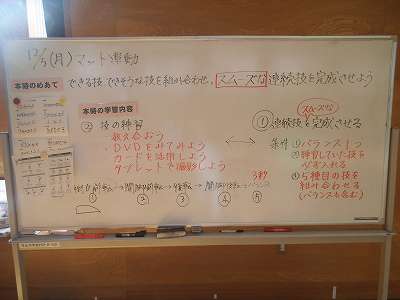 12/5(月)マット運動
本時のめあて
できる技、できそうな技を組み合わせ、スムーズな連続技を完成させよう
本時の学習内容
② 技の練習
教え合おう
・DVDをみてみよう
カードを活用しよう
タブレットで撮影しよう
スムーズな
① 連続技を完成させる
条件 ①バランス1つ
②練習していた技を
必ず入れる
③5種目の技を
組み合わせる
(バランスも含む)
3秒
→ → → → バランス
① ② ③ ④ ⑤